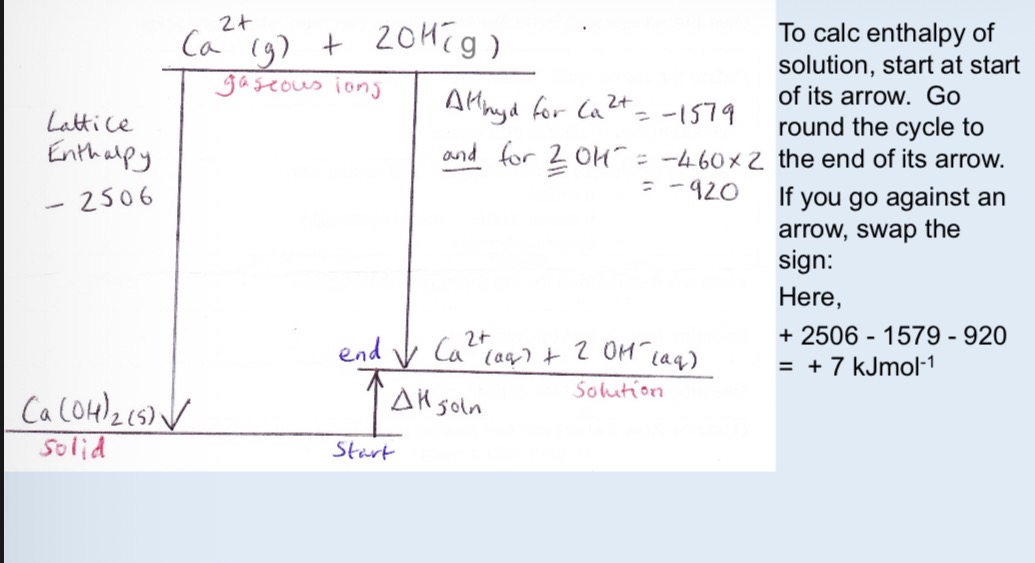 Ca²⁺(g) + 2OH⁻(g)
gaseous ions
Lattice
Enthalpy
- 2506
ΔHhyd for Ca²⁺ = -1579
and for 2 OH⁻ = -460×2
= -920
end
Ca²⁺(aq) + 2 OH⁻(aq)
Solution
ΔH soln
Ca(OH)₂(s)
Solid
Start
To calc enthalpy of
solution, start at start
of its arrow. Go
round the cycle to
the end of its arrow.
If you go against an
arrow, swap the
sign:
Here,
+ 2506 - 1579 - 920
= + 7 kJmol⁻¹